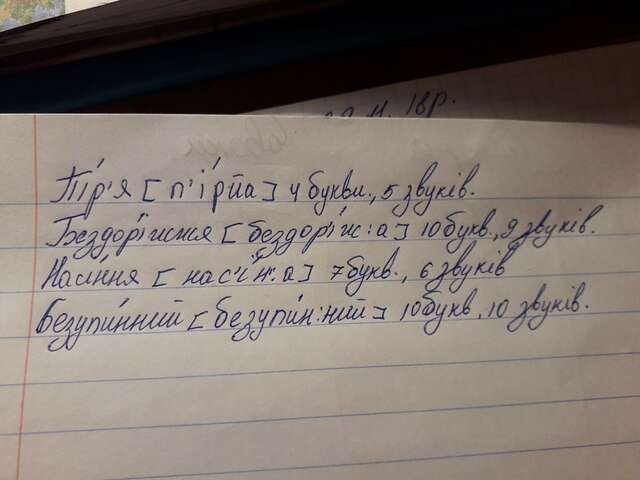 18р.
Пі́р'я [п'і́рйа] 4 букви., 5 звуків.
Бездорі́жжя [бездор'і́ж:а] 10 букв., 9 звуків.
Насі́ння [нас'і́н':а] 7 букв., 6 звуків
Безупи́нний [безупи́н:ний] 10 букв, 10 звуків.